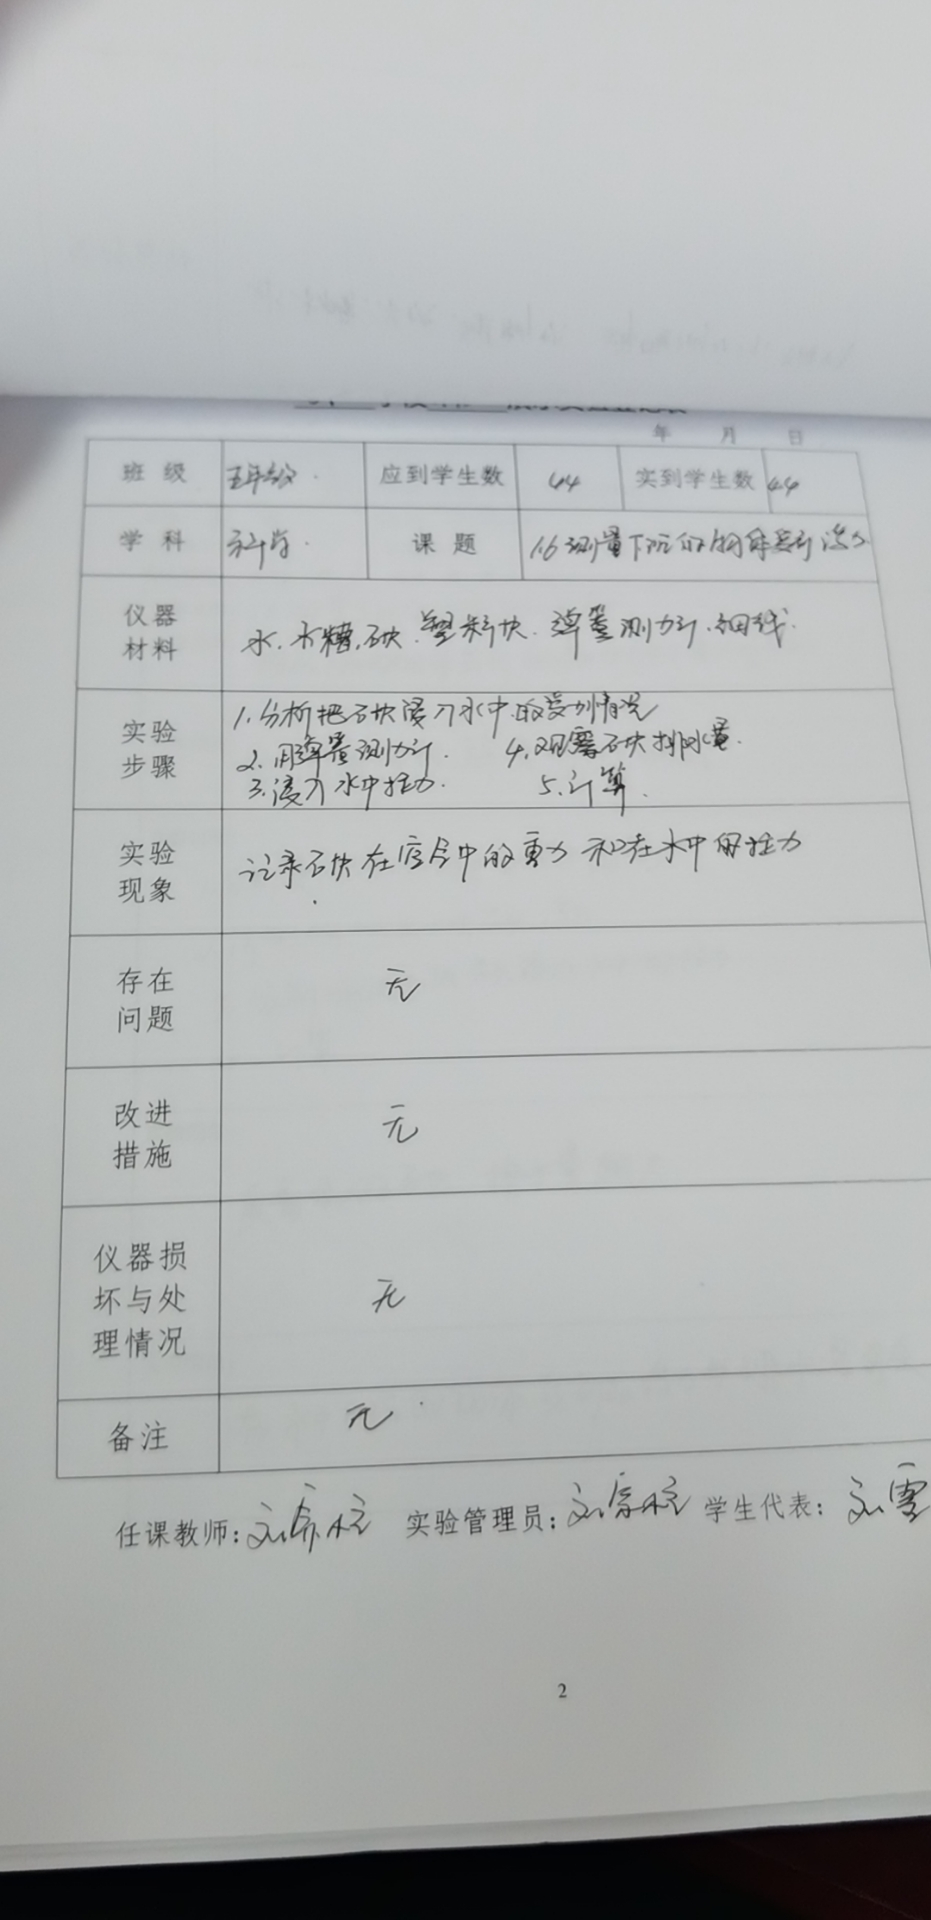 年 月 日
班级 五年级 应到学生数 44 实到学生数 44
学科 科学 课题 1.6测量下沉的物体受到浮力
仪器材料 水.水槽.石块.塑料块.弹簧测力计.细线.
实验步骤 1.分析把石块浸入水中的受到情况
2.用弹簧测力计. 4.观察石块排水量.
3.浸入水中拉力. 5.计算.
实验现象 记录石块在空气中的重力和在水中的拉力
存在问题 无
改进措施 无
仪器损坏与处理情况 无
备注 无
任课教师: 实验管理员: 学生代表:
2